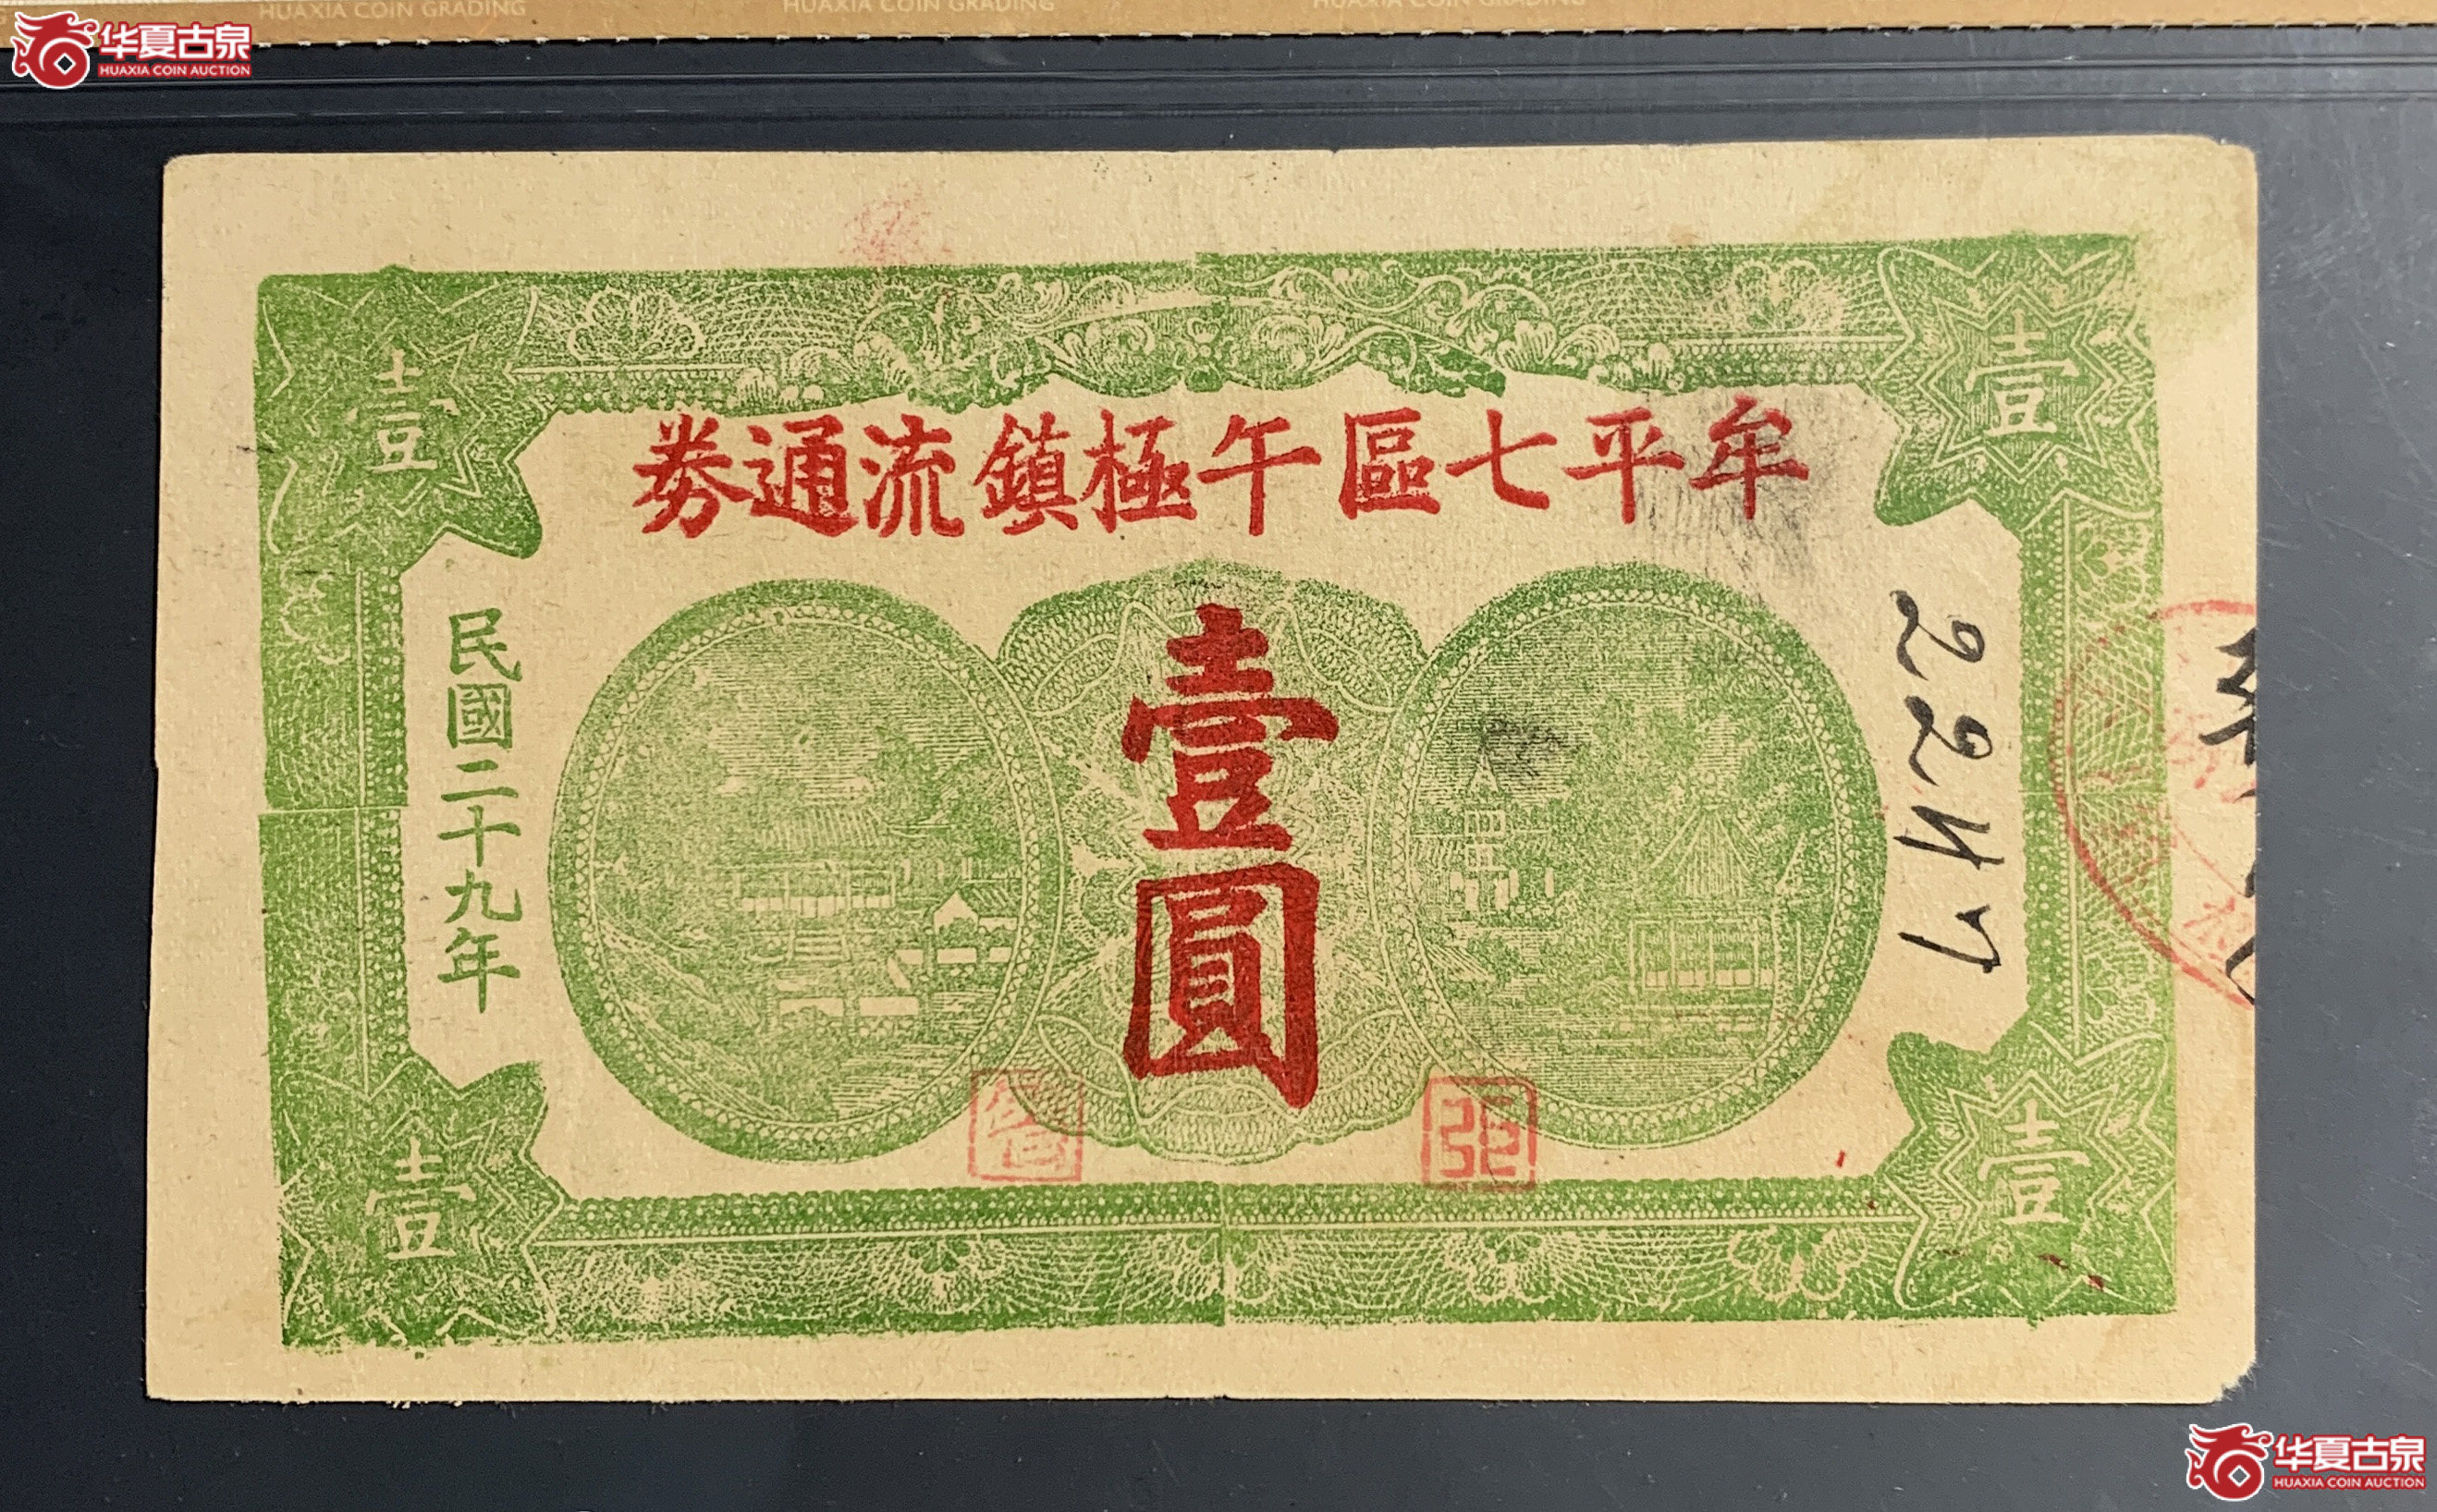 HUAXIA COIN GRADING HUAXIA COIN GRADING HUAXIA COIN GRADING
华夏古泉
HUAXIA COIN AUCTION
壹 壹
牟平七區午極鎮流通券
壹圓
民國二十九年
2247
張
壹 壹
华夏古泉
HUAXIA COIN AUCTION